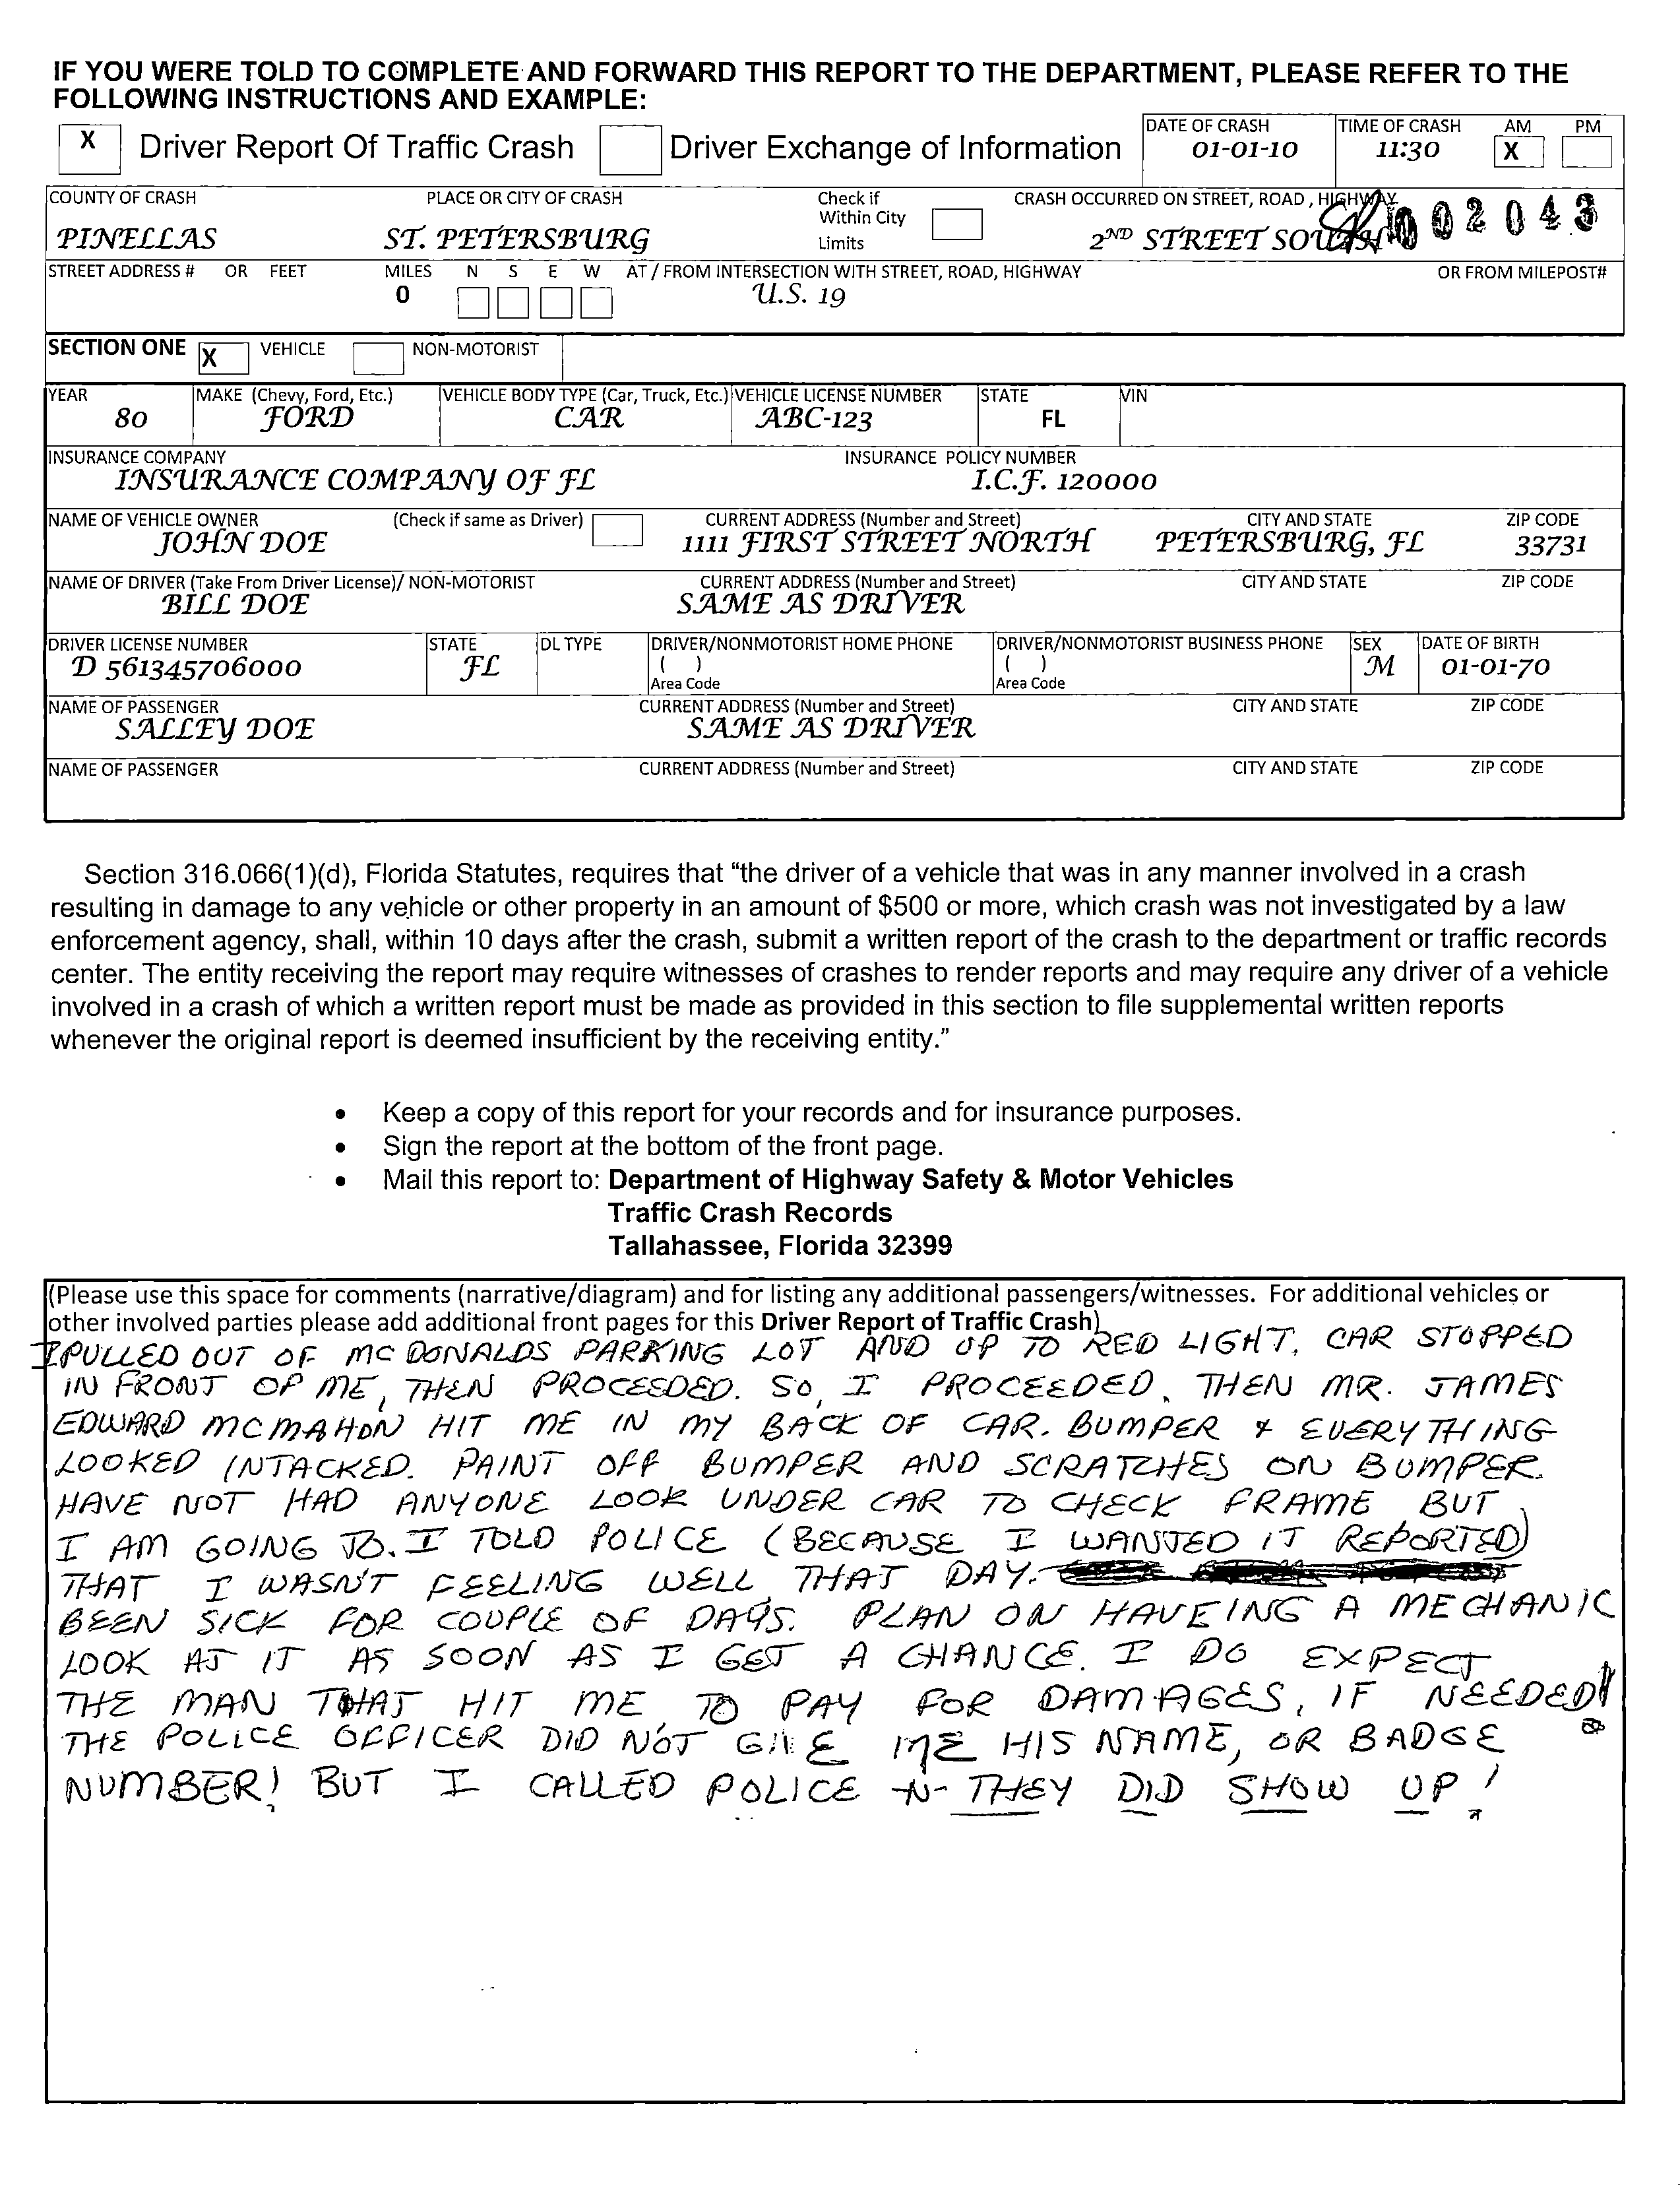 IF YOU WERE TOLD TO COMPLETE AND FORWARD THIS REPORT TO THE DEPARTMENT, PLEASE REFER TO THE
FOLLOWING INSTRUCTIONS AND EXAMPLE:
X Driver Report Of Traffic Crash Driver Exchange of Information DATE OF CRASH TIME OF CRASH AM PM
01-01-10 11:30 X
COUNTY OF CRASH PLACE OR CITY OF CRASH Check if Within City Limits CRASH OCCURRED ON STREET, ROAD, HIGHWAY
PINELLAS ST. PETERSBURG 2ND STREET SOUTH 002043
STREET ADDRESS # OR FEET MILES N S E W AT / FROM INTERSECTION WITH STREET, ROAD, HIGHWAY OR FROM MILEPOST#
0 U.S. 19
SECTION ONE X VEHICLE NON-MOTORIST
YEAR MAKE (Chevy, Ford, Etc.) VEHICLE BODY TYPE (Car, Truck, Etc.) VEHICLE LICENSE NUMBER STATE VIN
80 FORD CAR ABC-123 FL
INSURANCE COMPANY INSURANCE POLICY NUMBER
INSURANCE COMPANY OF FL I.C.F. 120000
NAME OF VEHICLE OWNER (Check if same as Driver) CURRENT ADDRESS (Number and Street) CITY AND STATE ZIP CODE
JOHN DOE 1111 FIRST STREET NORTH PETERSBURG, FL 33731
NAME OF DRIVER (Take From Driver License)/ NON-MOTORIST CURRENT ADDRESS (Number and Street) CITY AND STATE ZIP CODE
BILL DOE SAME AS DRIVER
DRIVER LICENSE NUMBER STATE DL TYPE DRIVER/NONMOTORIST HOME PHONE DRIVER/NONMOTORIST BUSINESS PHONE SEX DATE OF BIRTH
D 561345706000 FL ( ) ( ) M 01-01-70
Area Code Area Code
NAME OF PASSENGER CURRENT ADDRESS (Number and Street) CITY AND STATE ZIP CODE
SALLEY DOE SAME AS DRIVER
NAME OF PASSENGER CURRENT ADDRESS (Number and Street) CITY AND STATE ZIP CODE
Section 316.066(1)(d), Florida Statutes, requires that “the driver of a vehicle that was in any manner involved in a crash
resulting in damage to any vehicle or other property in an amount of $500 or more, which crash was not investigated by a law
enforcement agency, shall, within 10 days after the crash, submit a written report of the crash to the department or traffic records
center. The entity receiving the report may require witnesses of crashes to render reports and may require any driver of a vehicle
involved in a crash of which a written report must be made as provided in this section to file supplemental written reports
whenever the original report is deemed insufficient by the receiving entity.”
• Keep a copy of this report for your records and for insurance purposes.
• Sign the report at the bottom of the front page.
• Mail this report to: Department of Highway Safety & Motor Vehicles
Traffic Crash Records
Tallahassee, Florida 32399
(Please use this space for comments (narrative/diagram) and for listing any additional passengers/witnesses. For additional vehicles or
other involved parties please add additional front pages for this Driver Report of Traffic Crash)
I PULLED OUT OF MC DONALDS PARKING LOT AND UP TO RED LIGHT, CAR STOPPED
IN FRONT OF ME, THEN PROCEEDED. SO, I PROCEEDED, THEN MR. JAMES
EDWARD MCMAHON HIT ME IN MY BACK OF CAR. BUMPER & EVERYTHING
LOOKED INTACKED. PAINT OFF BUMPER AND SCRATCHES ON BUMPER.
HAVE NOT HAD ANYONE LOOK UNDER CAR TO CHECK FRAME BUT
I AM GOING TO. I TOLD POLICE (BECAUSE I WANTED IT REPORTED)
THAT I WASN'T FEELING WELL THAT DAY.
BEEN SICK FOR COUPLE OF DAYS. PLAN ON HAVEING A MECHANIC
LOOK AT IT AS SOON AS I GET A CHANCE. I DO EXPECT
THE MAN THAT HIT ME, TO PAY FOR DAMAGES, IF NEEDED!
THE POLICE OFFICER DID NOT GIVE ME HIS NAME, OR BADGE
NUMBER! BUT I CALLED POLICE -N- THEY DID SHOW UP!